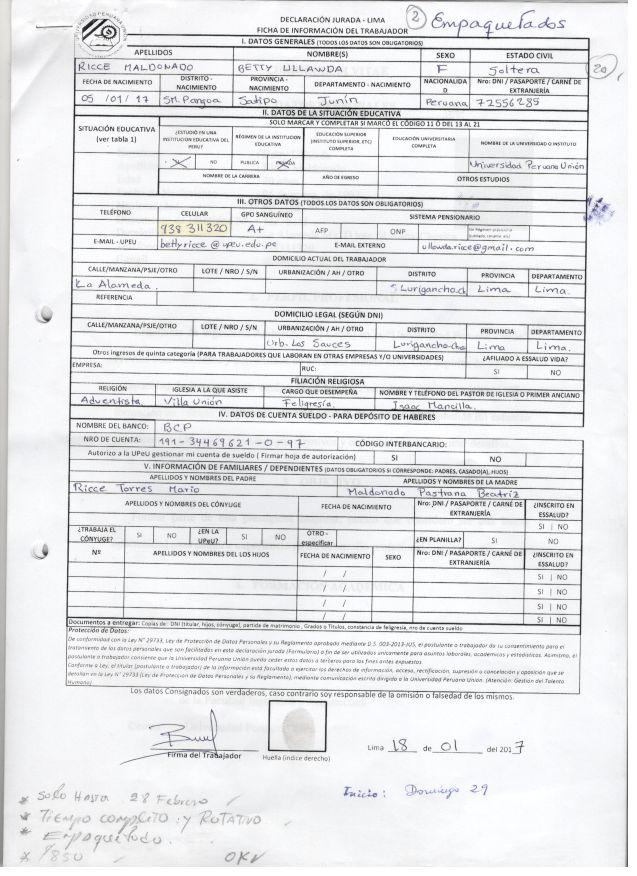 DECLARACIÓN JURADA - LIMA
2 Empaquetados
FICHA DE INFORMACIÓN DEL TRABAJADOR
I. DATOS GENERALES (TODOS LOS DATOS SON OBLIGATORIOS)
APELLIDOS NOMBRE(S) SEXO ESTADO CIVIL
RICCE MALDONADO BETTY ULLANDA F Soltera
20
FECHA DE NACIMIENTO DISTRITO - NACIMIENTO PROVINCIA - NACIMIENTO DEPARTAMENTO - NACIMIENTO NACIONALIDAD Nro: DNI / PASAPORTE / CARNÉ DE EXTRANJERÍA
05 /01/ 17 Sn. Pangoa Satipo Junín Peruana 72556285
II. DATOS DE LA SITUACIÓN EDUCATIVA
SOLO MARCAR Y COMPLETAR SI MARCÓ EL CÓDIGO 11 Ó DEL 13 AL 21
SITUACIÓN EDUCATIVA (ver tabla 1) ¿ESTUDIÓ EN UNA INSTITUCION EDUCATIVA DEL PERU? RÉGIMEN DE LA INSTITUCION EDUCATIVA EDUCACIÓN SUPERIOR (INSTITUTO SUPERIOR, ETC) COMPLETA EDUCACIÓN UNIVERSITARIA COMPLETA NOMBRE DE LA UNIVERSIDAD O INSTITUTO
SI NO PUBLICA PRIVADA Universidad Peruana Unión
NOMBRE DE LA CARRERA AÑO DE EGRESO OTROS ESTUDIOS
III. OTROS DATOS (TODOS LOS DATOS SON OBLIGATORIOS)
TELÉFONO CELULAR GPO SANGUÍNEO SISTEMA PENSIONARIO
938 311 320 A+ AFP ONP
E-MAIL - UPEU bettyricce @ upeu.edu.pe E-MAIL EXTERNO ullowda.ricce@gmail.com
DOMICILIO ACTUAL DEL TRABAJADOR
CALLE/MANZANA/PSJE/OTRO LOTE / NRO / S/N URBANIZACIÓN / AH / OTRO DISTRITO PROVINCIA DEPARTAMENTO
La Alameda. Lima Lima.
REFERENCIA
DOMICILIO LEGAL (SEGÚN DNI)
CALLE/MANZANA/PSJE/OTRO LOTE / NRO / S/N URBANIZACIÓN / AH / OTRO DISTRITO PROVINCIA DEPARTAMENTO
Urb. Los Sauces Lurigancho-Cho Lima Lima.
Otros ingresos de quinta categoría (PARA TRABAJADORES QUE LABORAN EN OTRAS EMPRESAS Y/O UNIVERSIDADES) ¿AFILIADO A ESSALUD VIDA?
EMPRESA: RUC: SI NO
FILIACIÓN RELIGIOSA
RELIGIÓN IGLESIA A LA QUE ASISTE CARGO QUE DESEMPEÑA NOMBRE Y TELÉFONO DEL PASTOR DE IGLESIA O PRIMER ANCIANO
Adventista. Villa Unión Feligresía. Isaac Mancilla.
IV. DATOS DE CUENTA SUELDO - PARA DEPÓSITO DE HABERES
NOMBRE DEL BANCO: BCP
NRO DE CUENTA: 191-34469621-0-97 CÓDIGO INTERBANCARIO:
Autorizo a la UPeU gestionar mi cuenta de sueldo ( Firmar hoja de autorización) SI NO
V. INFORMACIÓN DE FAMILIARES / DEPENDIENTES (DATOS OBLIGATORIOS SI CORRESPONDE: PADRES, CASADO(A), HIJOS)
APELLIDOS Y NOMBRES DEL PADRE APELLIDOS Y NOMBRES DE LA MADRE
Ricce Torres Mario Maldonado Pastrana Beatriz
APELLIDOS Y NOMBRES DEL CÓNYUGE FECHA DE NACIMIENTO Nro: DNI / PASAPORTE / CARNÉ DE EXTRANJERÍA ¿INSCRITO EN ESSALUD?
SI | NO
¿TRABAJA EL CÓNYUGE? SI NO ¿EN LA UPeU? SI NO OTRO - especificar ¿EN PLANILLA? SI NO
Nº APELLIDOS Y NOMBRES DEL LOS HIJOS FECHA DE NACIMIENTO SEXO Nro: DNI / PASAPORTE / CARNÉ DE EXTRANJERÍA ¿INSCRITO EN ESSALUD?
/ / SI | NO
/ / SI | NO
/ / SI | NO
/ / SI | NO
Documentos a entregar: Copias de: DNI (titular, hijos, cónyuge), partida de matrimonio , Grados o Títulos, constancia de feligresía, nro de cuenta sueldo
Protección de Datos:
De conformidad con la Ley N° 29733, Ley de Protección de Datos Personales y su Reglamento aprobado mediante D.S. 003-2013-JUS, el postulante o trabajador da su consentimiento para el
tratamiento de los datos personales que son facilitados en esta declaración jurada (Formulario) a fin de ser utilizados únicamente para asuntos laborales, académicos y estadísticos. Asimismo, el
postulante o trabajador consiente que la Universidad Peruana Unión pueda ceder estos datos a terceros para los fines antes expuestos.
Conforme a Ley, el titular (postulante o trabajador) de la información está facultado a ejercitar los derechos de información, acceso, rectificación, supresión o cancelación y oposición que se
detallan en la Ley N° 29733 (Ley de Protección de Datos Personales y su Reglamento), mediante comunicación escrita dirigida a la Universidad Peruana Unión. (Atención: Gestión del Talento
Humano)
Los datos Consignados son verdaderos, caso contrario soy responsable de la omisión o falsedad de los mismos.
Firma del Trabajador Huella (índice derecho) Lima 18 de 01 del 2017
Inicio: Domingo 29
* Solo Hasta 28 Febrero
* Tiempo completo y Rotativo
* Empaquetado.
* 850 OK